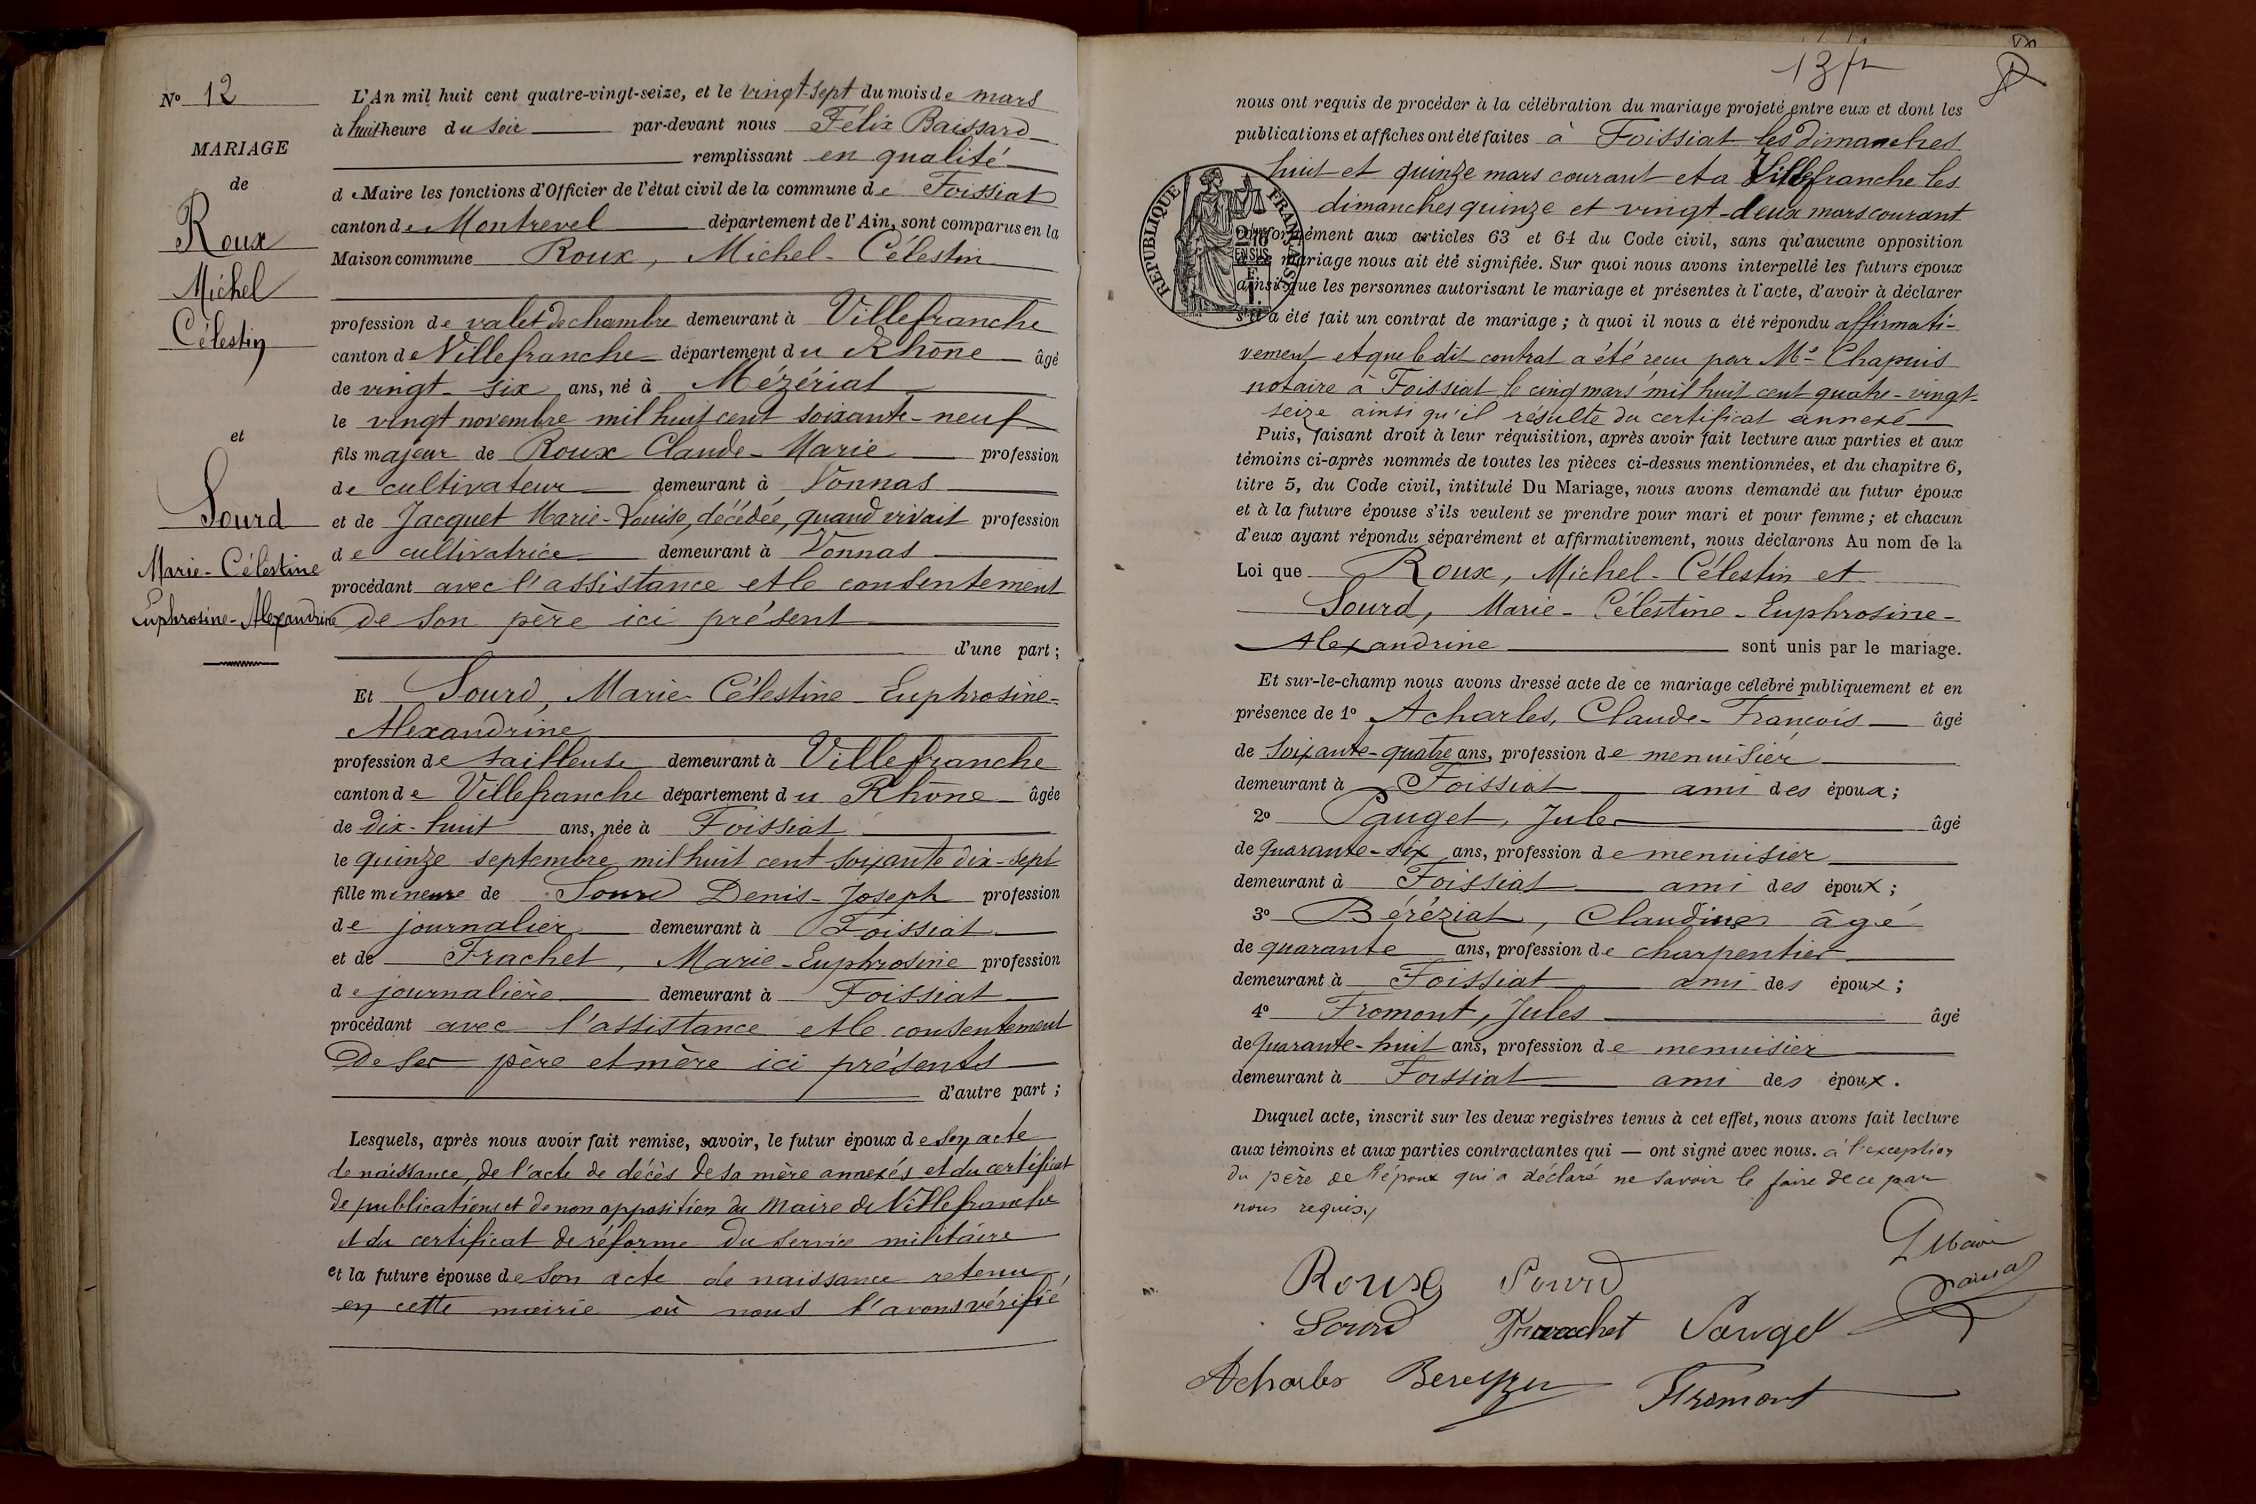 N° 12
MARIAGE
de
Roux
Michel
Célestin
et
Sourd
Marie-Célestine
Euphrosine-Alexandrine
L'An mil huit cent quatre-vingt-seize, et le vingt-sept du mois de mars
à huit heure du soir par-devant nous Félix Baissard
remplissant en qualité
de Maire les fonctions d'Officier de l'état civil de la commune de Foissiat
canton de Montrevel département de l'Ain, sont comparus en la
Maison commune Roux, Michel-Célestin
profession de valet de chambre demeurant à Villefranche
canton de Villefranche département du Rhône âgé
de vingt-six ans, né à Mézériat
le vingt novembre mil huit cent soixante-neuf
fils majeur de Roux Claude-Marie profession
de cultivateur demeurant à Vonnas
et de Jacquet Marie-Louise, décédée, quand vivait profession
de cultivatrice demeurant à Vonnas
procédant avec l'assistance et le consentement
de son père ici présent
d'une part;
Et Sourd, Marie-Célestine-Euphrosine-
Alexandrine
profession de tailleuse demeurant à Villefranche
canton de Villefranche département du Rhône âgée
de dix-huit ans, née à Foissiat
le quinze septembre mil huit cent soixante dix-sept
fille mineure de Sourd Denis-Joseph profession
de journalier demeurant à Foissiat
et de Frachet, Marie-Euphrosine profession
de journalière demeurant à Foissiat
procédant avec l'assistance et le consentement
de ses père et mère ici présents
d'autre part;
Lesquels, après nous avoir fait remise, savoir, le futur époux de son acte
de naissance, de l'acte de décès de sa mère annexés et du certificat
de publications et de non opposition du Maire de Villefranche
et du certificat de réforme du service militaire
et la future épouse de son acte de naissance retenu
en cette mairie où nous l'avons vérifié
nous ont requis de procéder à la célébration du mariage projeté entre eux et dont les
publications et affiches ont été faites à Foissiat les dimanches
huit et quinze mars courant et à Villefranche les
dimanches quinze et vingt-deux mars courant
conformément aux articles 63 et 64 du Code civil, sans qu'aucune opposition
à ce mariage nous ait été signifiée. Sur quoi nous avons interpellé les futurs époux
ainsi que les personnes autorisant le mariage et présentes à l'acte, d'avoir à déclarer
s'il a été fait un contrat de mariage; à quoi il nous a été répondu affirmati-
vement et que ledit contrat a été reçu par Me Chapuis
notaire à Foissiat le cinq mars mil huit cent quatre-vingt-
seize ainsi qu'il résulte du certificat annexé
RÉPUBLIQUE FRANÇAISE
Puis, faisant droit à leur réquisition, après avoir fait lecture aux parties et aux
témoins ci-après nommés de toutes les pièces ci-dessus mentionnées, et du chapitre 6,
titre 5, du Code civil, intitulé Du Mariage, nous avons demandé au futur époux
et à la future épouse s'ils veulent se prendre pour mari et pour femme; et chacun
d'eux ayant répondu séparément et affirmativement, nous déclarons Au nom de la
Loi que Roux, Michel-Célestin et
Sourd, Marie-Célestine-Euphrosine-
Alexandrine sont unis par le mariage.
Et sur-le-champ nous avons dressé acte de ce mariage célébré publiquement et en
présence de 1° Acharles, Claude-François âgé
de soixante-quatre ans, profession de menuisier
demeurant à Foissiat ami des époux;
2° Pauget, Jules âgé
de quarante-six ans, profession de menuisier
demeurant à Foissiat ami des époux;
3° Béréziat, Claudius âgé
de quarante ans, profession de charpentier
demeurant à Foissiat ami des époux;
4° Fromont, Jules âgé
de quarante-huit ans, profession de menuisier
demeurant à Foissiat ami des époux.
Duquel acte, inscrit sur les deux registres tenus à cet effet, nous avons fait lecture
aux témoins et aux parties contractantes qui — ont signé avec nous. à l'exception
du père de l'époux qui a déclaré ne savoir le faire de ce par
nous requis./
Roux Sourd
Sourd Frachet Pauget
Acharles Fromont